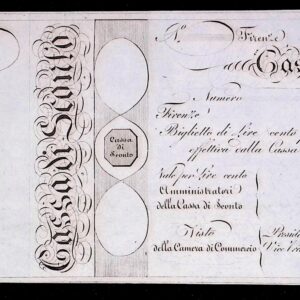 Cassa di Sconto
Cassa
di
Sconto
N.º
Firenze
alla Cas
Numero
Firenze
Biglietto di Lire cento
effettiva dalla Cassa
Vale per Lire cento
Amministratori
della Cassa di Sconto
Visto
della Camera di Commercio
Presid
Vice Pres